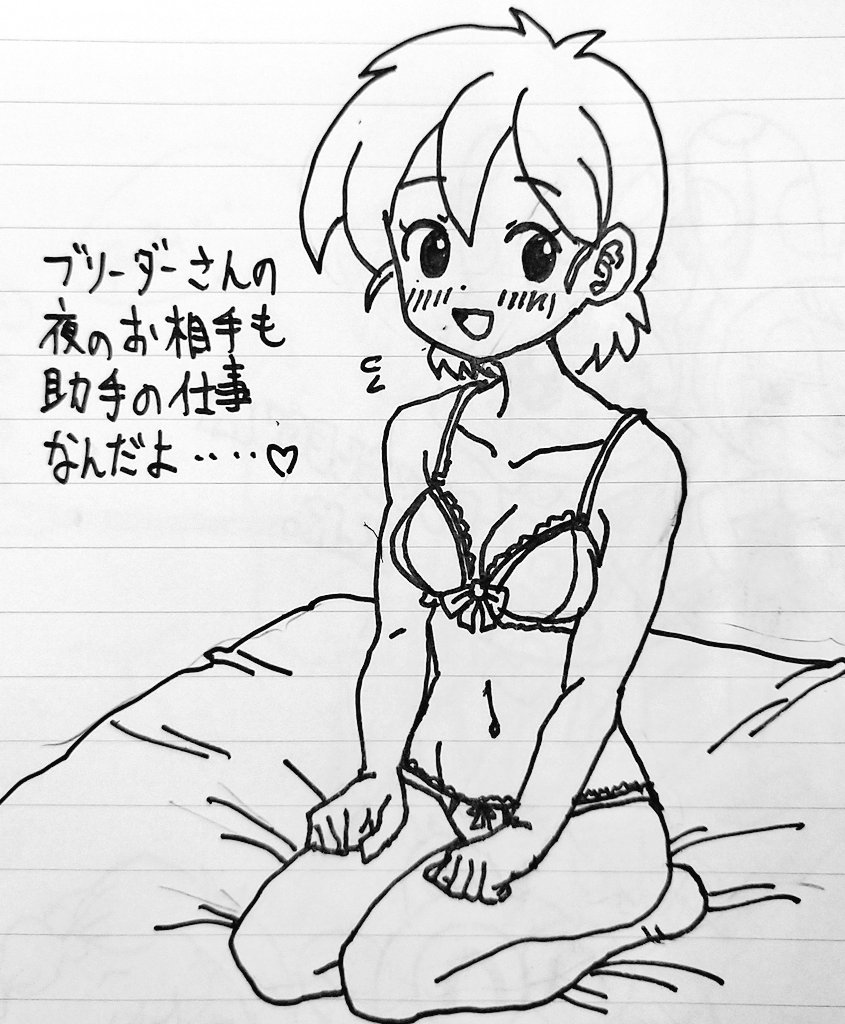 ブリーダーさんの
夜のお相手も
助手の仕事
なんだよ‥‥♡